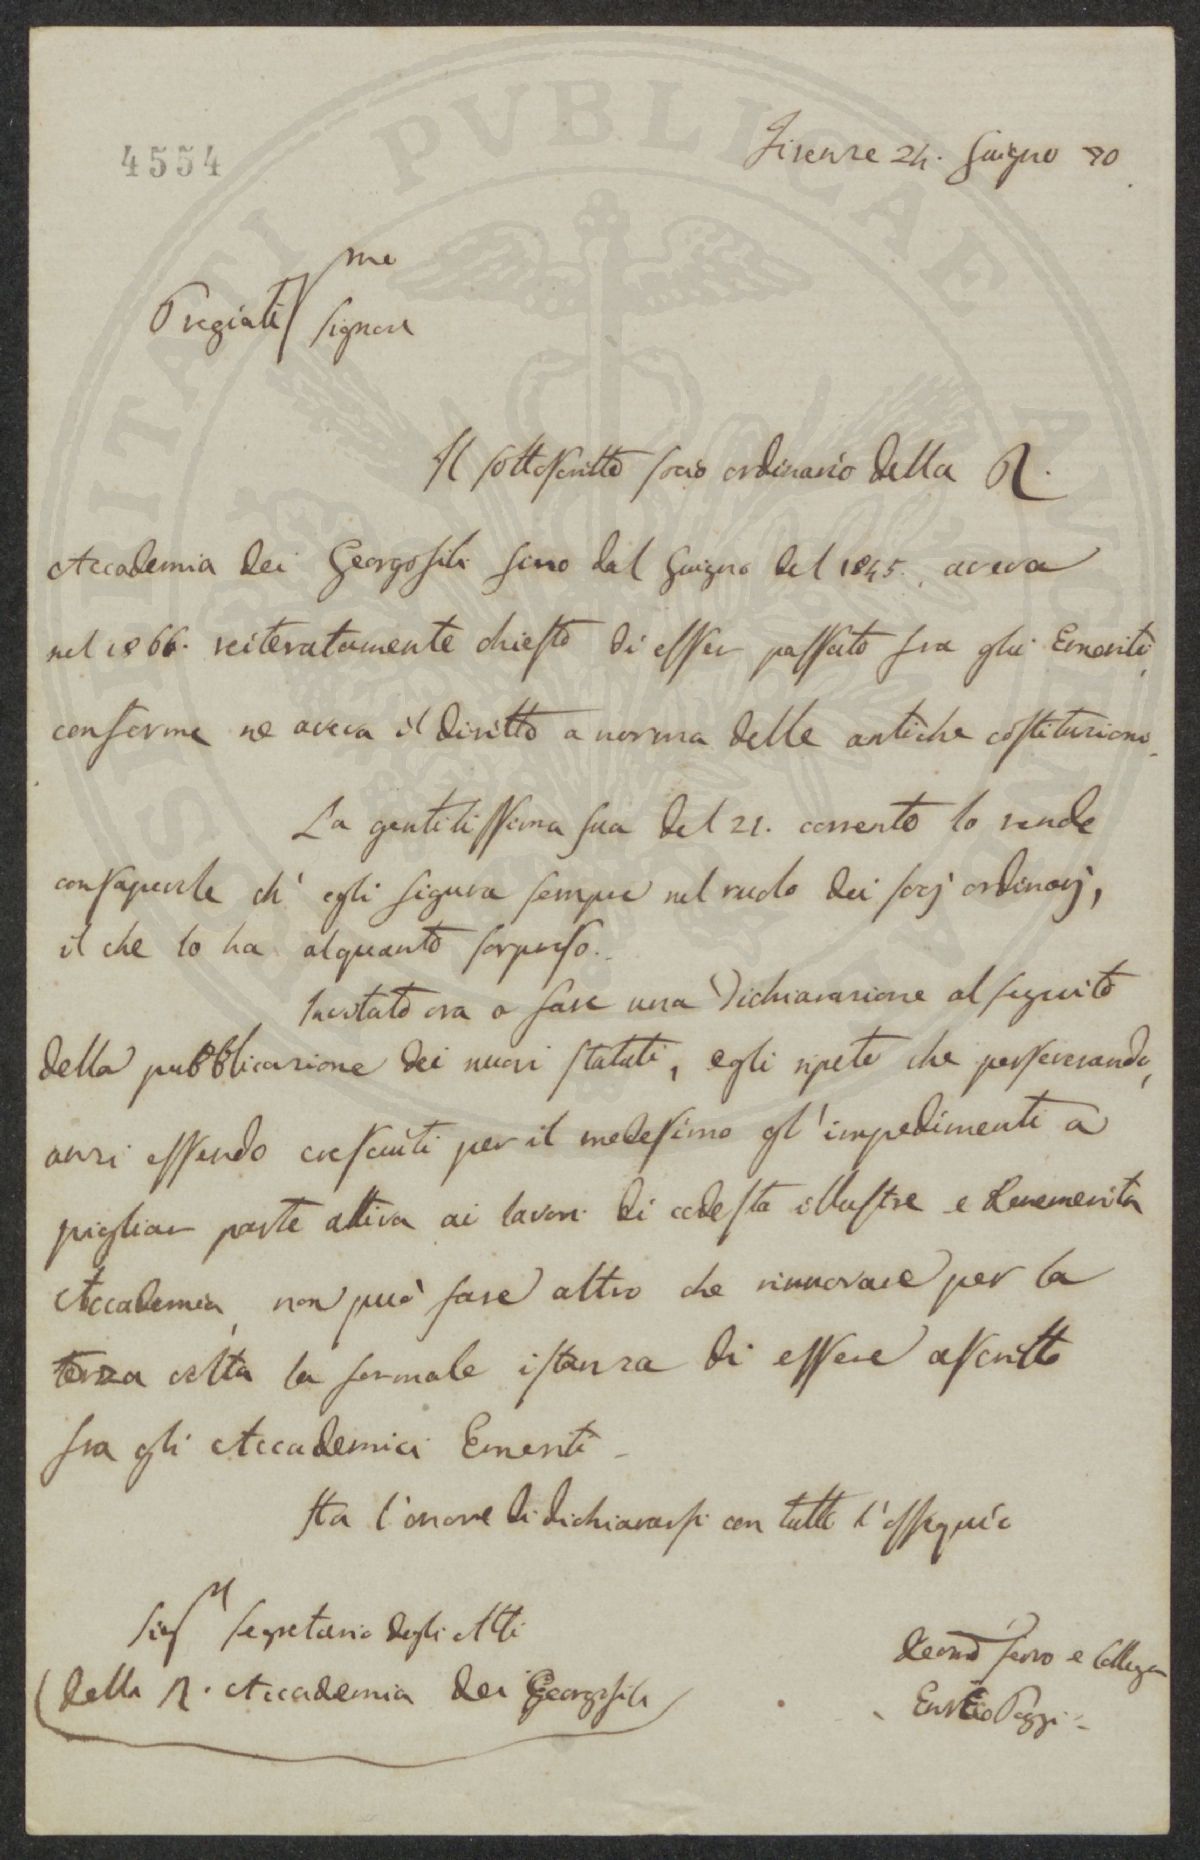 4554
Firenze 24. Giugno 80
Pregiati͞me Signore
Il sottoscritto socio ordinario della R.
Accademia dei Georgofili fino dal Giugno del 1845. aveva
nel 1866. reiteratamente chiesto di esser passato fra gli Emeriti,
conforme ne aveva il diritto a norma delle antiche costituzioni.
La gentilissima sua del 21. corrente lo rende
consapevole ch' egli figura sempre nel ruolo dei socj ordinarj,
il che lo ha alquanto sorpreso.
Invitato ora a fare una dichiarazione al seguito
della pubblicazione dei nuovi statuti, egli ripete che perseverando,
anzi essendo cresciuti per il medesimo gl' impedimenti a
pigliar parte attiva ai lavori di codesta illustre e benemerita
Accademia, non può fare altro che rinnovare per la
terza volta la formale istanza di essere ascritto
fra gli Accademici Emeriti -
Ha l'onore di dichiararsi con tutto l'ossequio
Sigr Segretario degli Atti
della R. Accademia dei Georgofili
Devmo servo e Collega
Enrico Poggi
SPERITATI PVBLICAE AVGENDAE